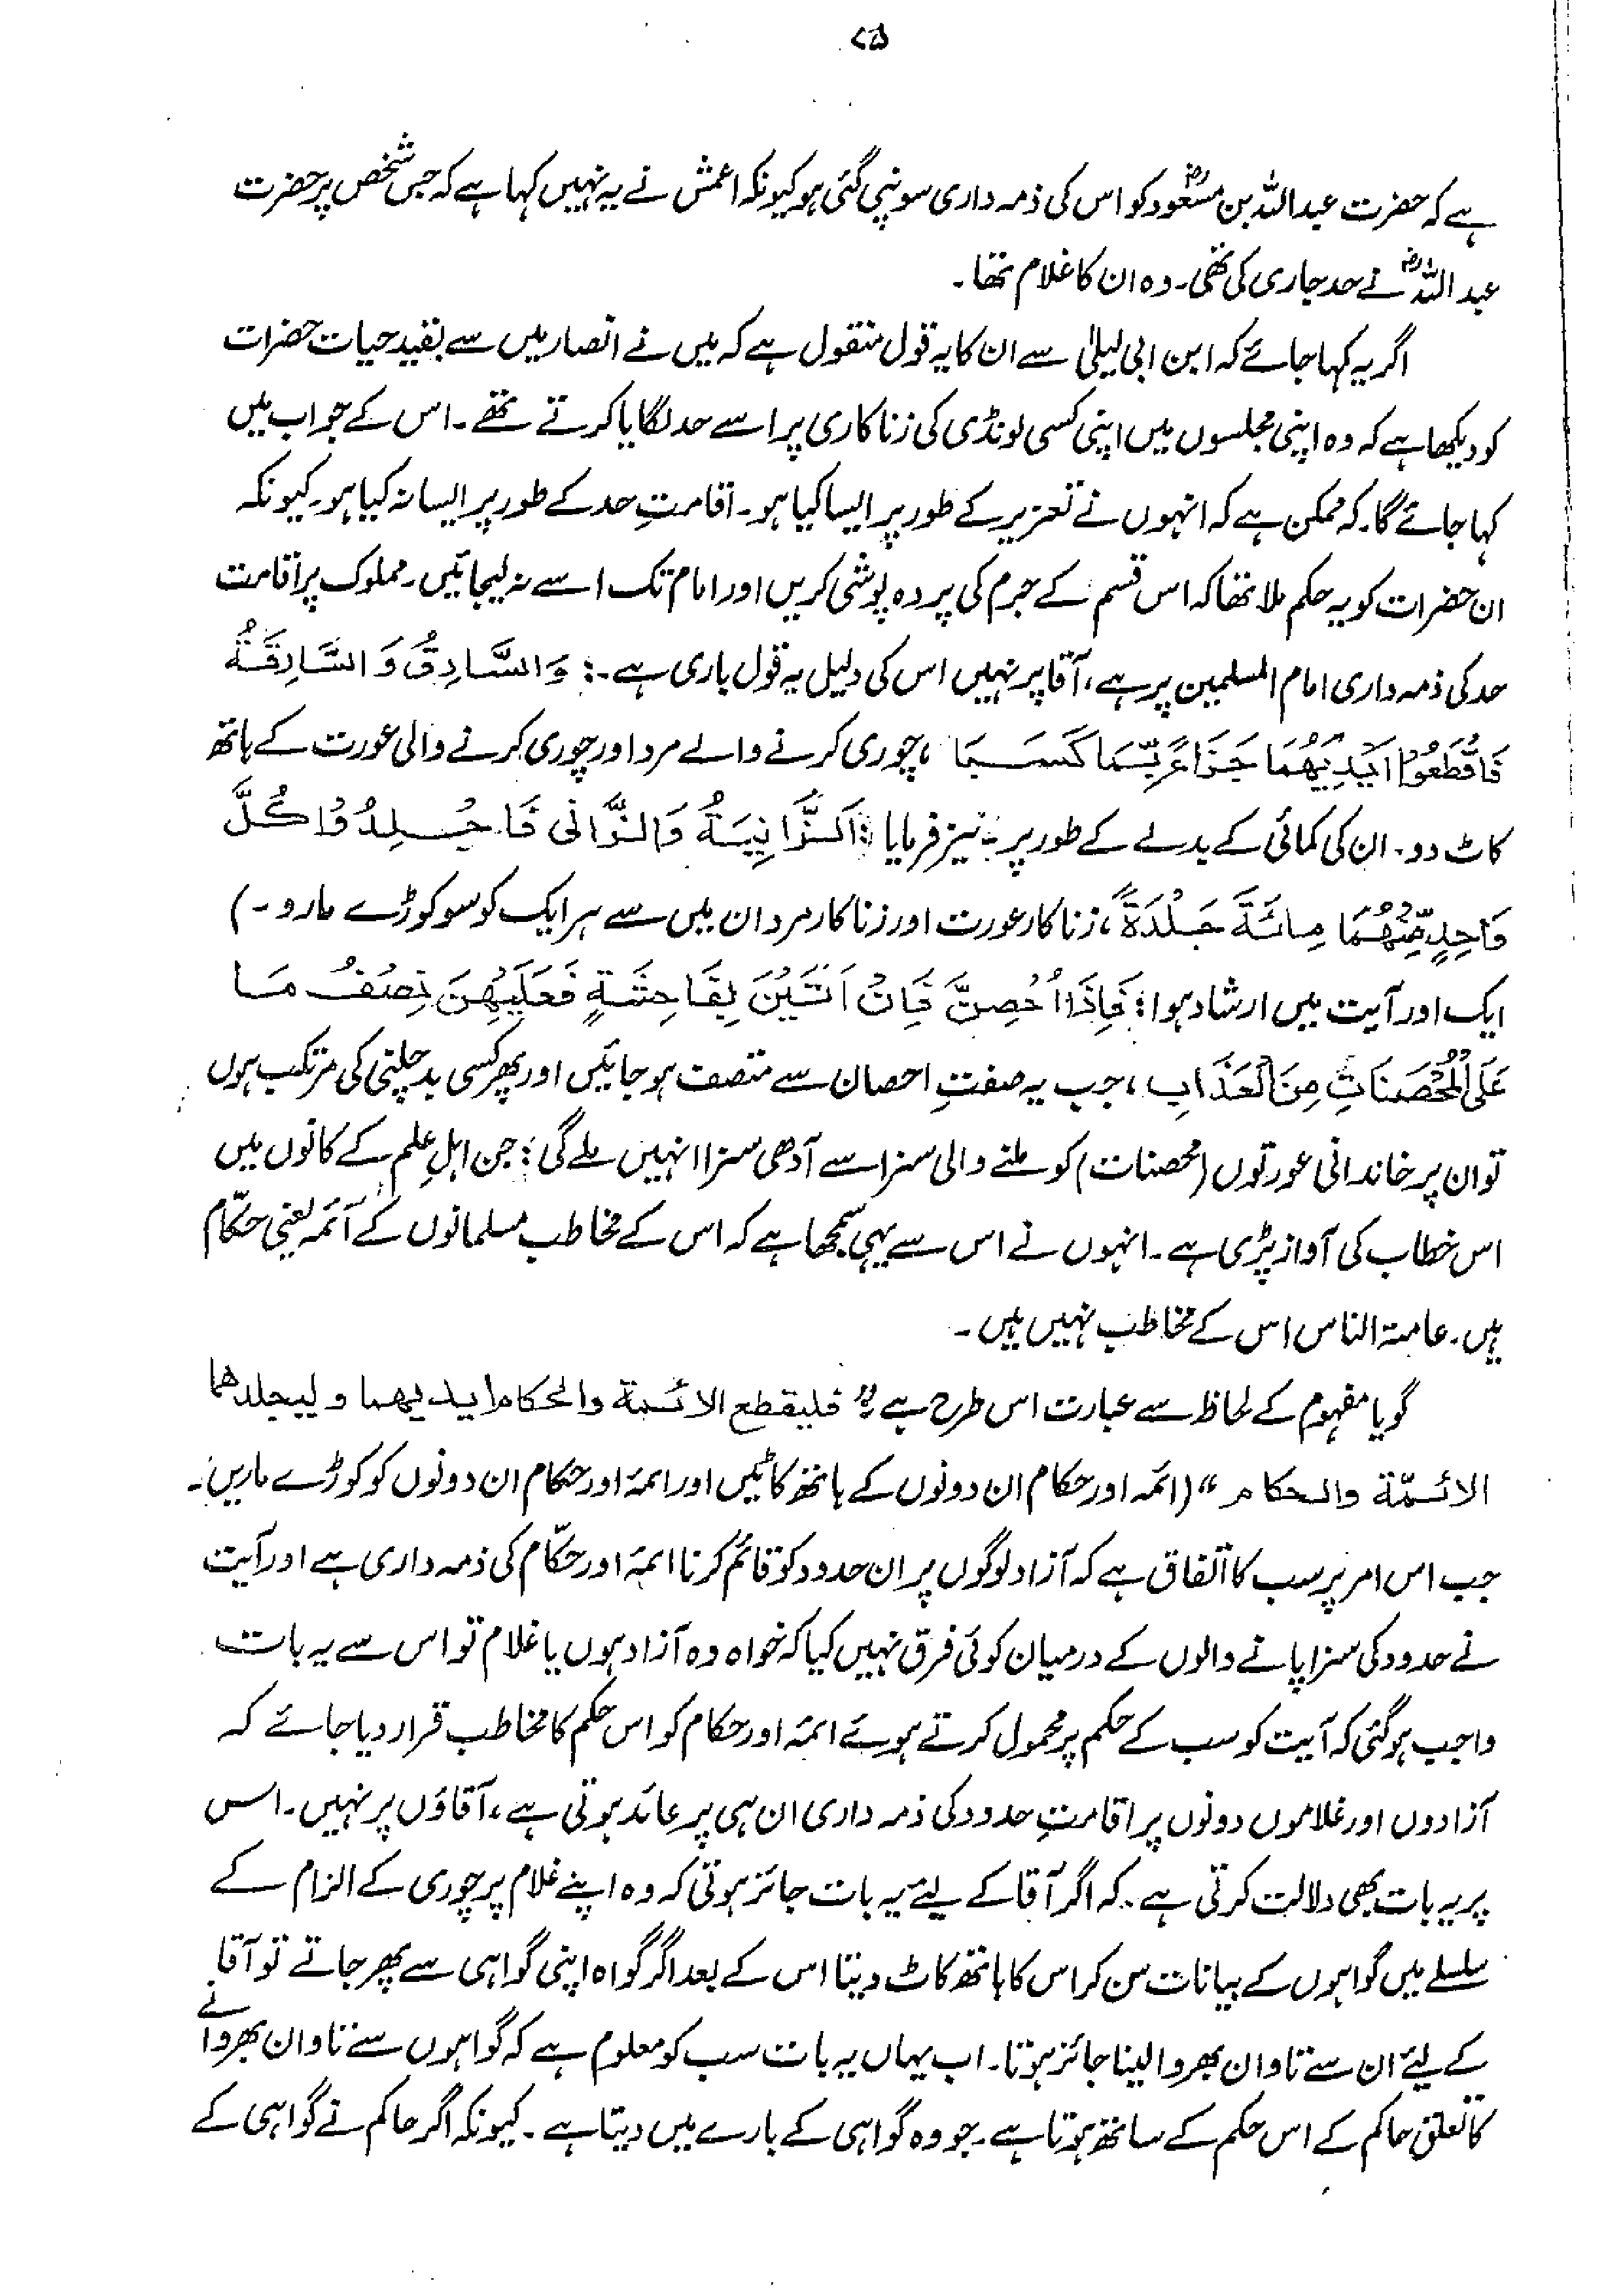 ۷۵
ہے کہ حضرت عبداللہ بن مسعودؓ کو اس کی ذمہ داری سونپی گئی ہو کیونکہ اعمش نے یہ نہیں کہا ہے کہ جس شخص پر حضرت
عبداللہؓ نے حد جاری کی تھی۔ وہ ان کا غلام تھا۔
اگر یہ کہا جائے کہ ابن ابی لیلیٰ سے ان کا یہ قول منقول ہے کہ میں نے انصار میں سے بقید حیات حضرات
کو دیکھا ہے کہ وہ اپنی مجلسوں میں اپنی کسی لونڈی کی زناکاری پر اسے حد لگایا کرتے تھے۔ اس کے جواب میں
کہا جائے گا۔ کہ ممکن ہے کہ انہوں نے تعزیر کے طور پر ایسا کیا ہو۔ اقامتِ حد کے طور پر ایسا نہ کیا ہو۔ کیونکہ
ان حضرات کو یہ حکم ملا تھا کہ اس قسم کے جرم کی پردہ پوشی کریں اور امام تک اسے نہ لیجائیں۔ مملوک پر اقامت
حد کی ذمہ داری امام المسلمین پر ہے، آقا پر نہیں اس کی دلیل یہ قول باری ہے۔: وَالسَّارِقُ وَالسَّارِقَةُ
فَاقْطَعُوْا اَيْدِيَهُمَا جَزَاءً بِّمَا كَسَبَا ، چوری کرنے والے مرد اور چوری کرنے والی عورت کے ہاتھ
کاٹ دو۔ ان کی کمائی کے بدلے کے طور پر: نیز فرمایا: اَلزَّانِيَةُ وَالزَّانِى فَاجْلِدُوْا كُلَّ
وَاحِدٍ مِّنْهُمَا مِائَةَ جَلْدَةً، زناکار عورت اور زناکار مرد ان میں سے ہر ایک کو سو کوڑے مارو۔)
ایک اور آیت میں ارشاد ہوا: فَاِذَا اُحْصِنَّ فَاِنْ اَتَيْنَ بِفَاحِشَةٍ فَعَلَيْهِنَّ نِصْفُ مَا
عَلَى الْمُحْصَنَاتِ مِنَ الْعَذَابِ ، جب یہ صفتِ احصان سے متصف ہو جائیں اور پھر کسی بدچلنی کی مرتکب ہوں
تو ان پر خاندانی عورتوں (محصنات) کو ملنے والی سزا سے آدھی سزا انہیں ملے گی: جن اہلِ علم کے کانوں میں
اس خطاب کی آواز پڑی ہے۔ انہوں نے اس سے یہی سمجھا ہے کہ اس کے مخاطب مسلمانوں کے آئمہ یعنی حکّام
ہیں۔ عامۃ الناس اس کے مخاطب نہیں ہیں۔
گویا مفہوم کے لحاظ سے عبارت اس طرح ہے " فليقطع الائمة والحكام ايديهما و ليجلدهما
الائمّة والحكام " (ائمہ اور حکام ان دونوں کے ہاتھ کاٹیں اور ائمہ اور حکام ان دونوں کو کوڑے ماریں۔
جب اس امر پر سب کا اتفاق ہے کہ آزاد لوگوں پر ان حدود کو قائم کرنا ائمہ اور حکّام کی ذمہ داری ہے اور آیت
نے حدود کی سزا پانے والوں کے درمیان کوئی فرق نہیں کیا کہ خواہ وہ آزاد ہوں یا غلام تو اس سے یہ بات
واجب ہو گئی کہ آیت کو سب کے حکم پر محمول کرتے ہوئے ائمہ اور حکام کو اس حکم کا مخاطب قرار دیا جائے کہ
آزادوں اور غلاموں دونوں پر اقامتِ حدود کی ذمہ داری ان ہی پر عائد ہوتی ہے، آقاؤں پر نہیں۔ اس
پر یہ بات بھی دلالت کرتی ہے۔ کہ اگر آقا کے لیے یہ بات جائز ہوتی کہ وہ اپنے غلام پر چوری کے الزام کے
سلسلے میں گواہوں کے بیانات سن کر اس کا ہاتھ کاٹ دیتا اس کے بعد اگر گواہ اپنی گواہی سے پھر جاتے تو آقا
کے لیئے ان سے تاوان بھروا لینا جائز ہوتا۔ اب یہاں یہ بات سب کو معلوم ہے کہ گواہوں سے تاوان بھروانے
کا تعلق حاکم کے اس حکم کے ساتھ ہوتا ہے۔ جو وہ گواہی کے بارے میں دیتا ہے۔ کیونکہ اگر حاکم نے گواہی کے